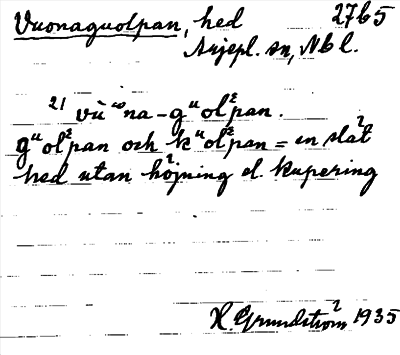 Vuonaguolpan, hed 2765
Arjepl. sn, Nbl.
21 vùᵚna-gᵘolᵋpan.
gᵘolᵋpan och kᵘolᵋpan = en slät
hed utan höjning el. kupering
H. Grundström 1935